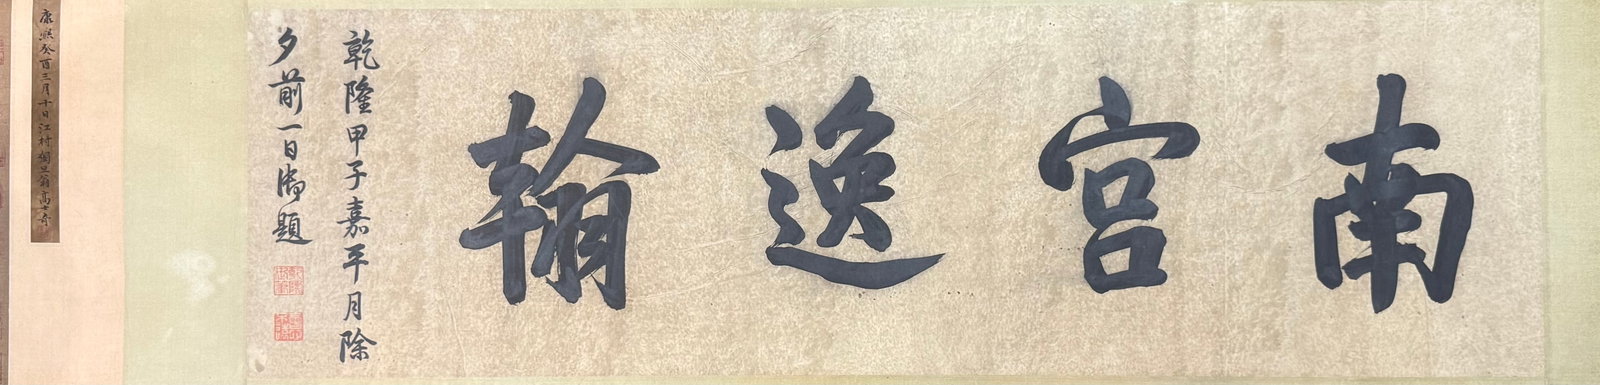 南宮逸翰
乾隆甲子嘉平月除
夕前一日御題
康熙癸酉三月十日江村獨旦翁高士奇